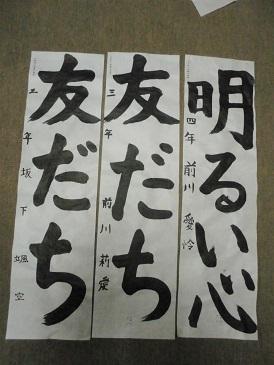 明るい心
四年 前川 愛怜
友だち
三年 前川 莉愛
友だち
三年 坂下 颯空